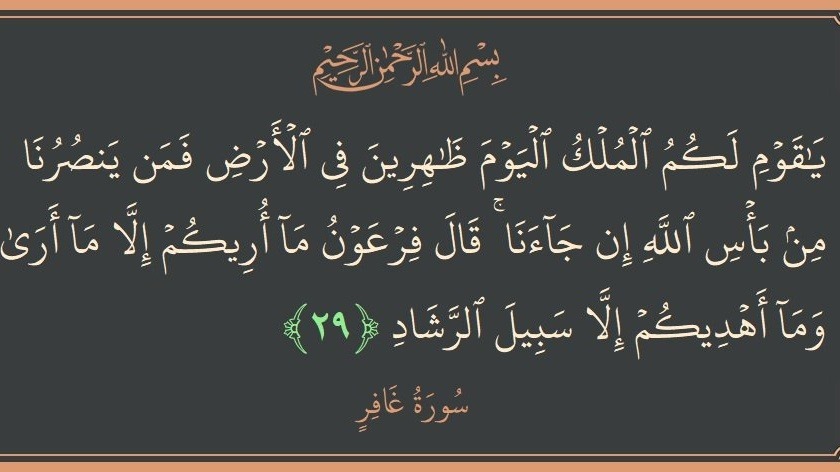 بِسْمِ اللَّهِ الرَّحْمَٰنِ الرَّحِيمِ
يَـٰقَوْمِ لَكُمُ ٱلْمُلْكُ ٱلْيَوْمَ ظَـٰهِرِينَ فِى ٱلْأَرْضِ فَمَن يَنصُرُنَا
مِنۢ بَأْسِ ٱللَّهِ إِن جَآءَنَا ۚ قَالَ فِرْعَوْنُ مَآ أُرِيكُمْ إِلَّا مَآ أَرَىٰ
وَمَآ أَهْدِيكُمْ إِلَّا سَبِيلَ ٱلرَّشَادِ ﴿٢٩﴾
سُورَةُ غَافِرٍ